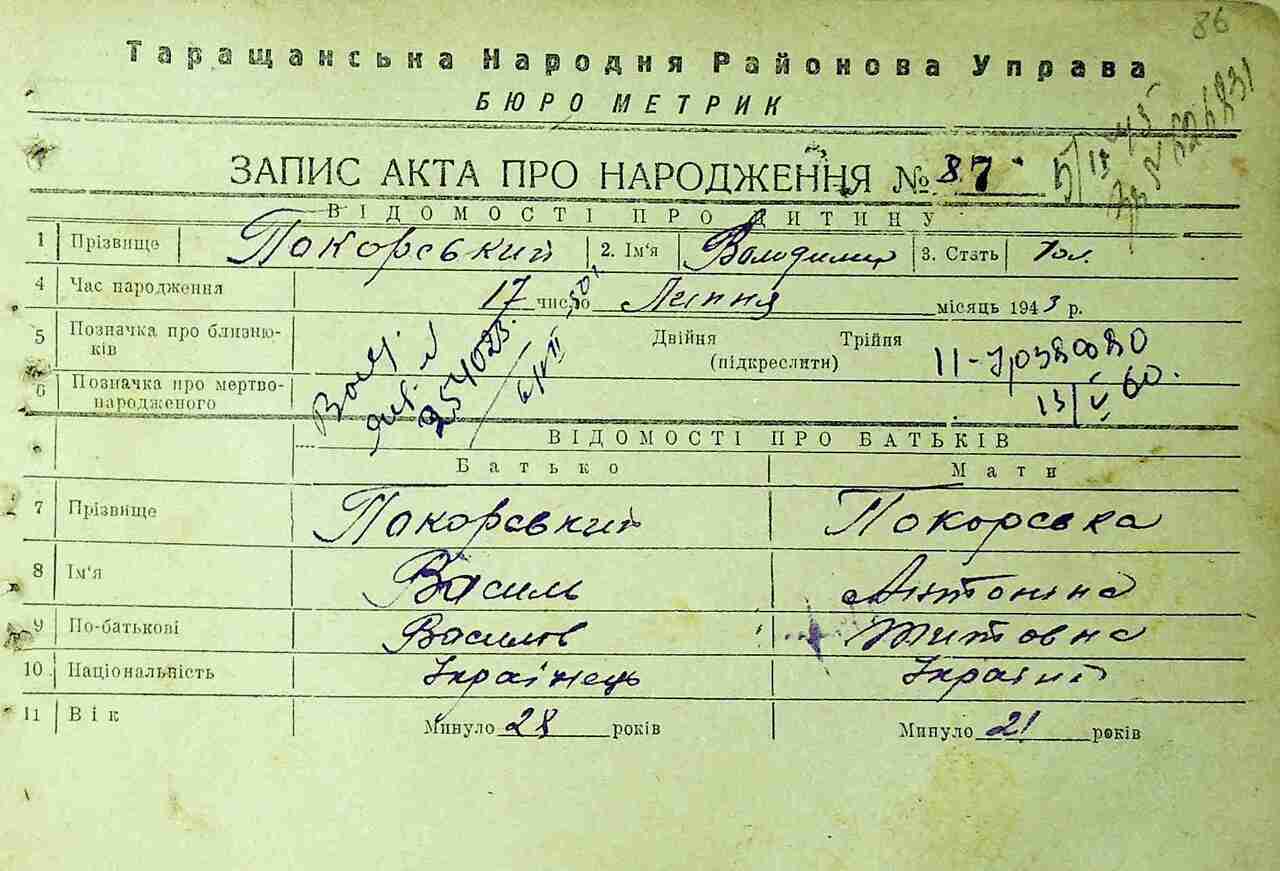 86
Таращанська Народня Районова Управа
БЮРО МЕТРИК
ЗАПИС АКТА ПРО НАРОДЖЕННЯ № 87
ВІДОМОСТІ ПРО ДИТИНУ
1 Прізвище Покорський 2. Ім'я Володимир 3. Стать Чол.
4 Час народження 17 число Липня місяць 1943 р.
5 Позначка про близню-
ків
Двійня Трійня
(підкреслити)
6 Позначка про мертво-
народженого
13/V 60.
ВІДОМОСТІ ПРО БАТЬКІВ
Батько Мати
7 Прізвище Покорський Покорська
8 Ім'я Василь Антоніна
9 По-батькові Василов Титовна
10 Національність Українець
11 Вік Минуло 28 років Минуло 21 років